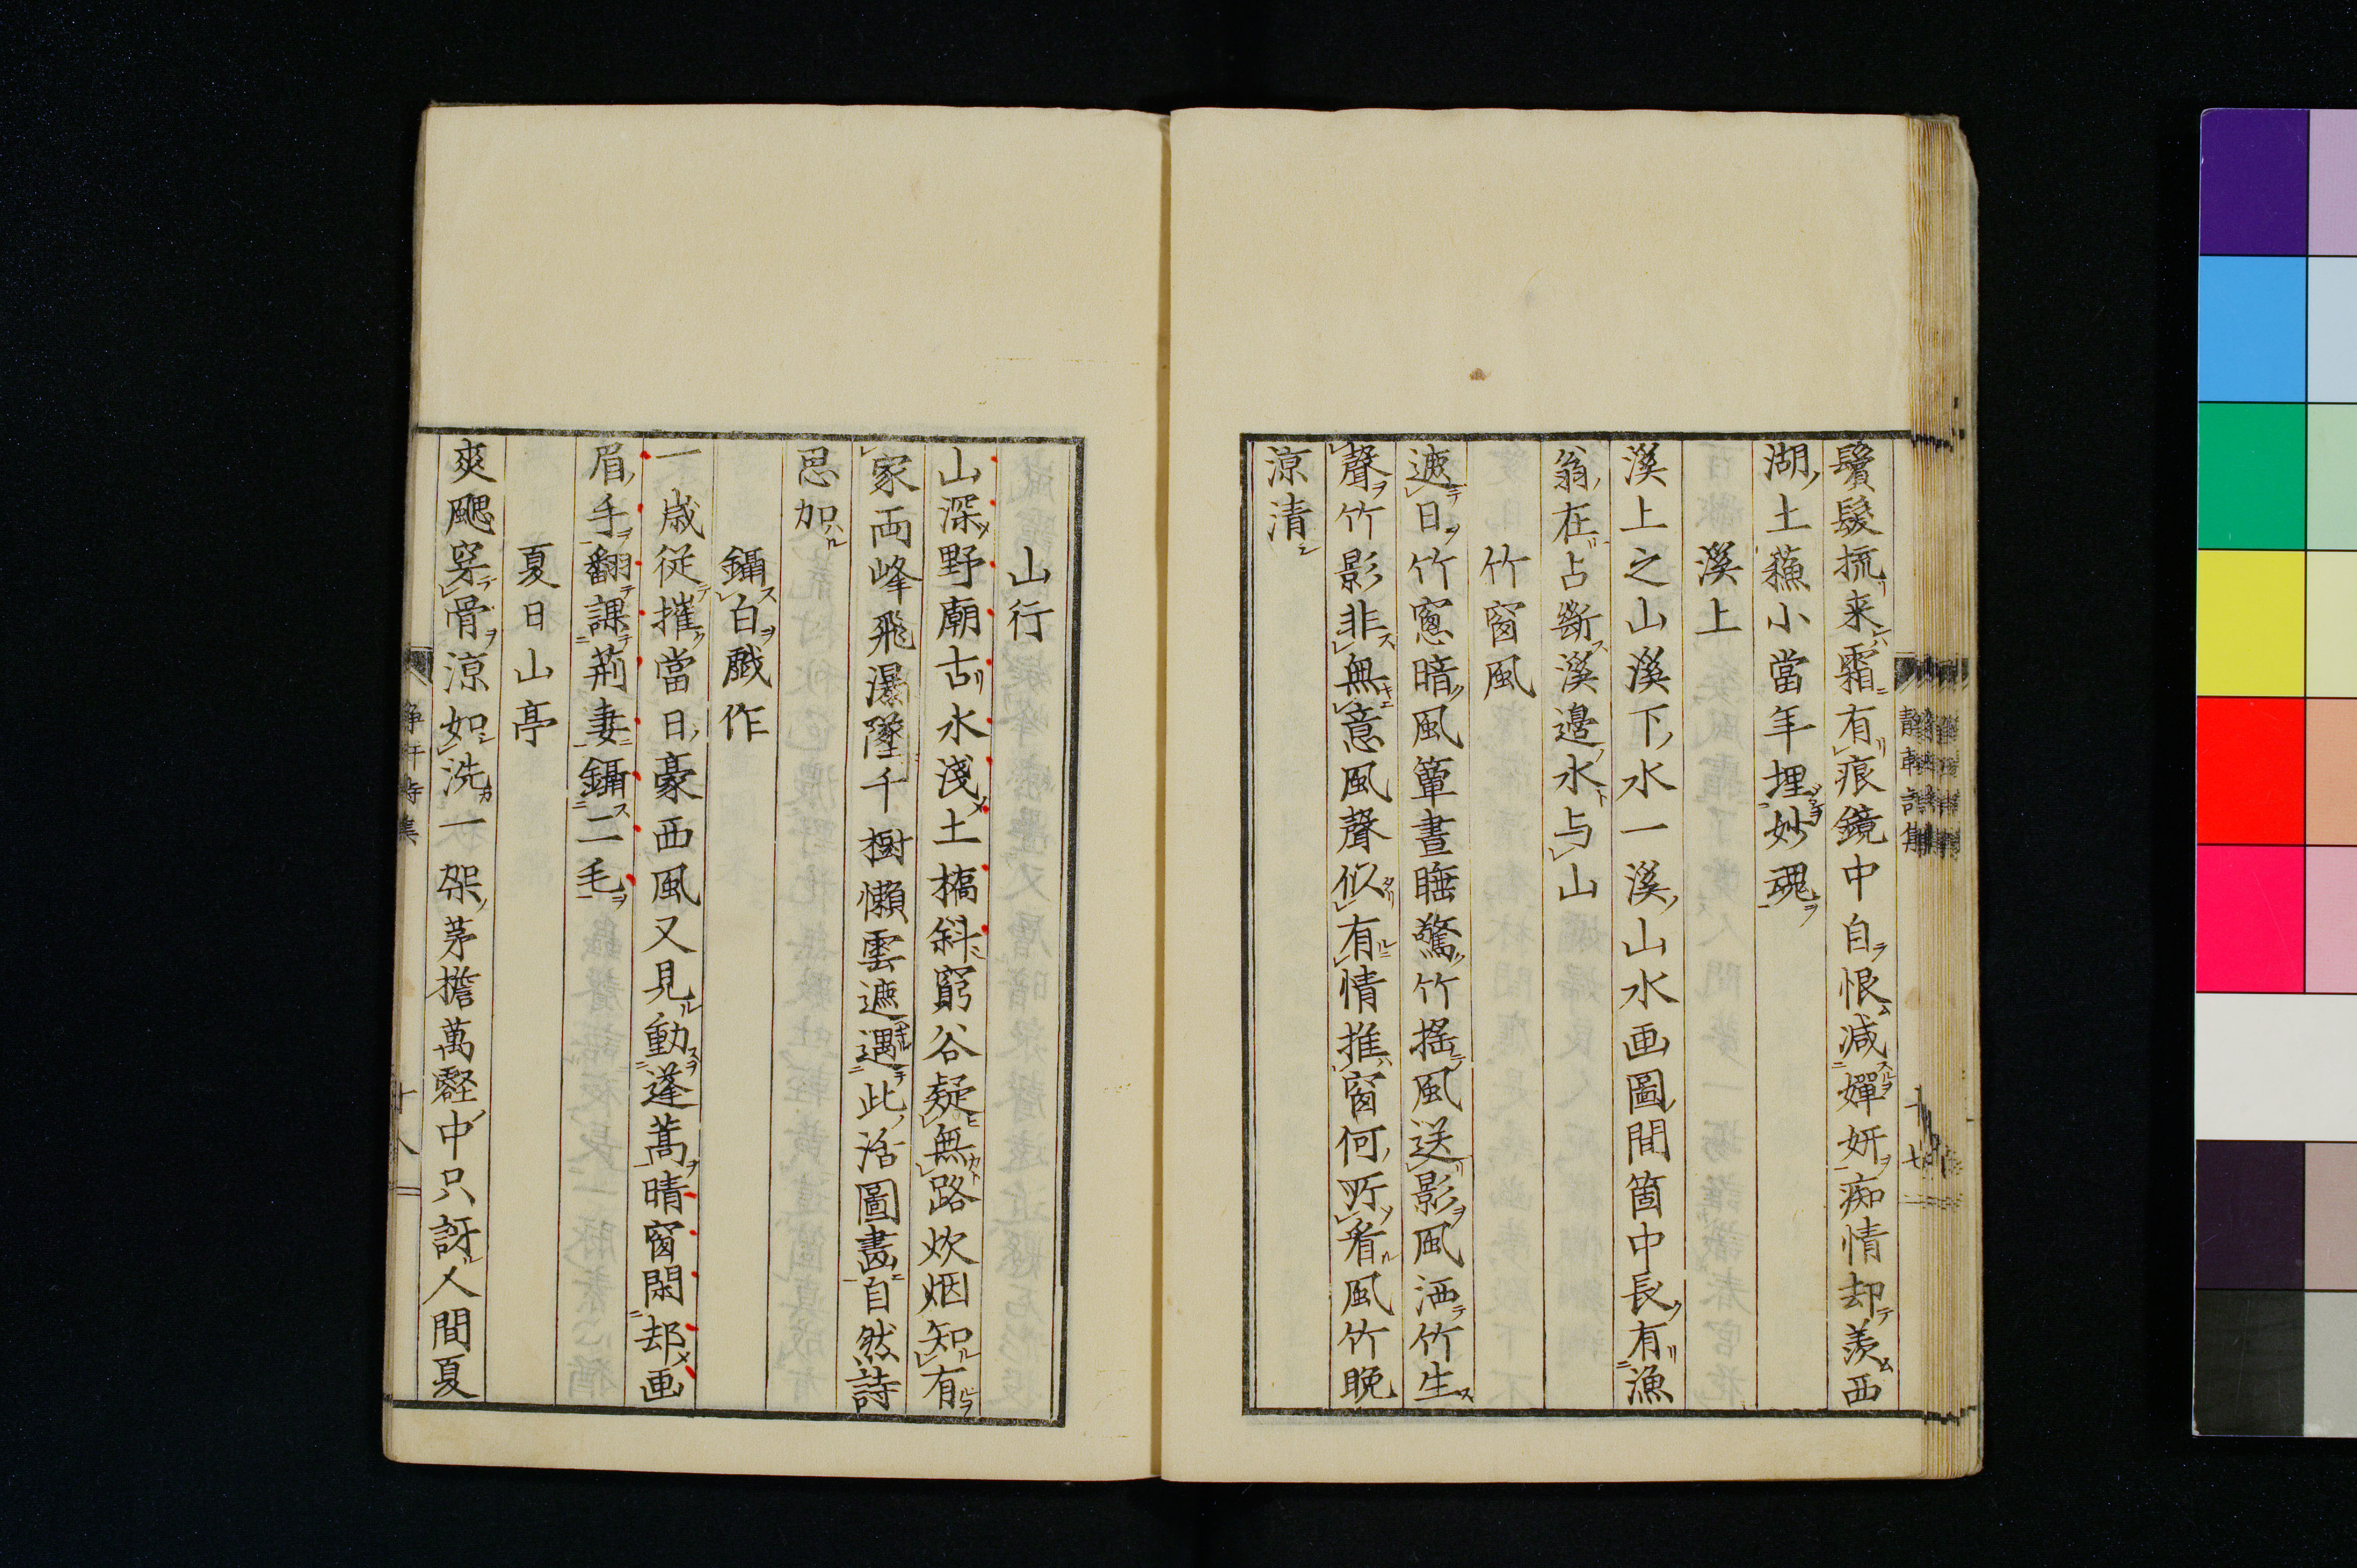 鬢髮梳来霜有痕鏡中自恨減嬋妍痴情却羨西
湖土蘓小當年埋妙魂
溪上
溪上之山溪下水一溪山水画圖間箇中長有漁
翁在占斷溪邉水与山
竹窗風
遮日竹窓暗風簟晝睡驚竹搖風送影風洒竹生
聲竹影非無意風聲似有情推窗何所看風竹晚
涼清
山行
山深野廟古水淺土橋斜窮谷疑無路炊烟知有
家両峰飛瀑墜千樹懶雲遮遇此活圖畵自然詩
思加
鑷白戯作
一歳従摧當日豪西風又見動蓬蒿晴窗閑却画
眉手翻課荊妻鑷二毛
夏日山亭
爽颸穿骨涼如洗一架茅檐萬壑中只訝人間夏